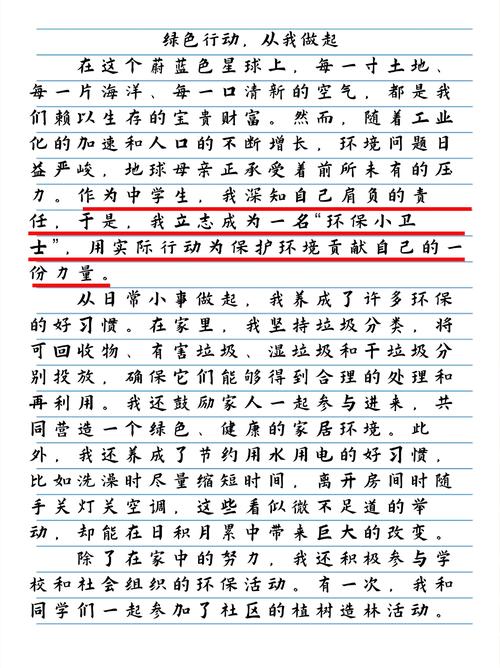 绿色行动，从我做起
在这个蔚蓝色星球上，每一寸土地、
每一片海洋、每一口清新的空气，都是我
们赖以生存的宝贵财富。然而，随着工业
化的加速和人口的不断增长，环境问题日
益严峻，地球母亲正承受着前所未有的压
力。作为中学生，我深知自己肩负的责
任，于是，我立志成为一名“环保小卫
士”，用实际行动为保护环境贡献自己的一
份力量。
从日常小事做起，我养成了许多环保
的好习惯。在家里，我坚持垃圾分类，将
可回收物、有害垃圾、湿垃圾和干垃圾分
别投放，确保它们能够得到合理的处理和
再利用。我还鼓励家人一起参与进来，共
同营造一个绿色、健康的家居环境。此
外，我还养成了节约用水用电的好习惯，
比如洗澡时尽量缩短时间，离开房间时随
手关灯关空调，这些看似微不足道的举
动，却能在日积月累中带来巨大的改变。
除了在家中的努力，我还积极参与学
校和社会组织的环保活动。有一次，我和
同学们一起参加了社区的植树造林活动。